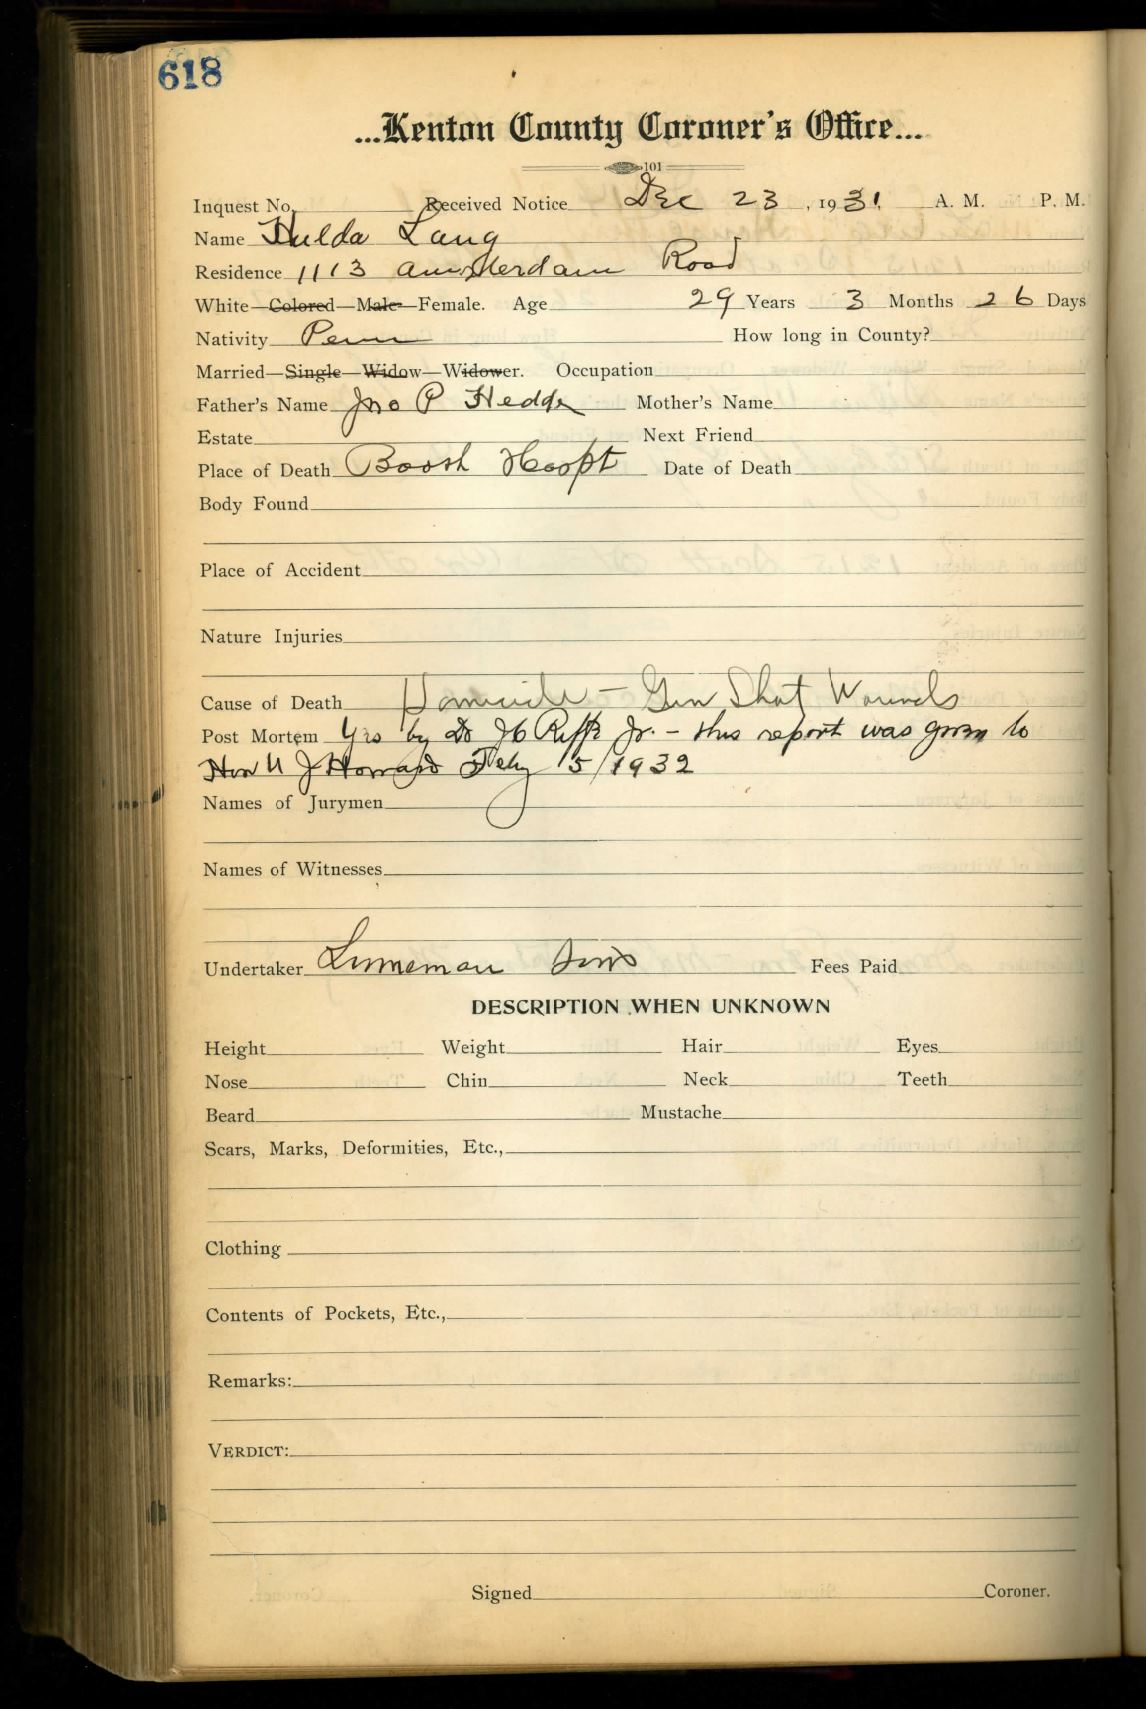 618
...Kenton County Coroner's Office...
101
Inquest No. Received Notice Dec 23, 1931, A. M. P. M.
Name Hulda Lang
Residence 1113 Amsterdam Road
White—Colored—Male—Female. Age 29 Years 3 Months 26 Days
Nativity Penn How long in County?
Married—Single—Widow—Widower. Occupation
Father's Name Jno P Hedge Mother's Name
Estate Next Friend
Place of Death Booth Hospt Date of Death
Body Found
Place of Accident
Nature Injuries
Cause of Death Homicide — Gun Shot Wounds
Post Mortem Yes by Dr Riffe Jr. - this report was given to
Hon U J Howard Feby 15/1932
Names of Jurymen
Names of Witnesses
Undertaker Linneman Sons Fees Paid
DESCRIPTION WHEN UNKNOWN
Height Weight Hair Eyes
Nose Chin Neck Teeth
Beard Mustache
Scars, Marks, Deformities, Etc.,
Clothing
Contents of Pockets, Etc.,
Remarks:
VERDICT:
Signed Coroner.